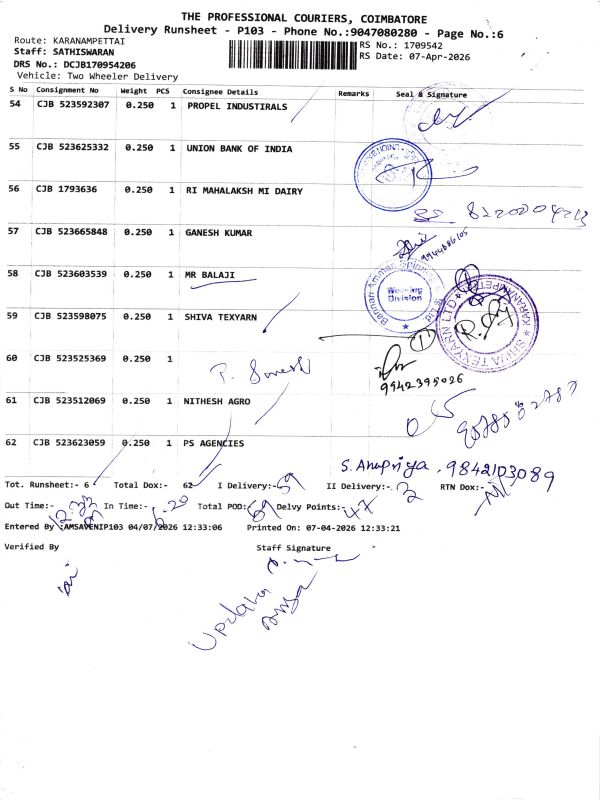 THE PROFESSIONAL COURIERS, COIMBATORE
Delivery Runsheet - P103 - Phone No.:9047080280 - Page No.:6
Route: KARANAMPETTAI
RS No.: 1709542
Staff: SATHISWARAN
RS Date: 07-Apr-2026
DRS No.: DCJB170954206
Vehicle: Two Wheeler Delivery
S No Consignment No Weight PCS Consignee Details Remarks Seal & Signature
54 CJB 523592307 0.250 1 PROPEL INDUSTIRALS
55 CJB 523625332 0.250 1 UNION BANK OF INDIA
56 CJB 1793636 0.250 1 RI MAHALAKSH MI DAIRY
57 CJB 523665848 0.250 1 GANESH KUMAR
9944686105
58 CJB 523603539 0.250 1 MR BALAJI
Weaving Division
59 CJB 523598075 0.250 1 SHIVA TEXYARN
SHIVA TEXYARN LTD
60 CJB 523525369 0.250 1
9942395026
61 CJB 523512069 0.250 1 NITHESH AGRO
62 CJB 523623059 0.250 1 PS AGENCIES
S. Anupriya . 9842103089
Tot. Runsheet:- 6 Total Dox:- 62 I Delivery:- 59 II Delivery:- 3 RTN Dox:- Nil
Out Time:- 12.33 In Time:- 6.20 Total POD: 59 Delvy Points:- 47
Entered By :AMSAVENIP103 04/07/2026 12:33:06 Printed On: 07-04-2026 12:33:21
Verified By Staff Signature